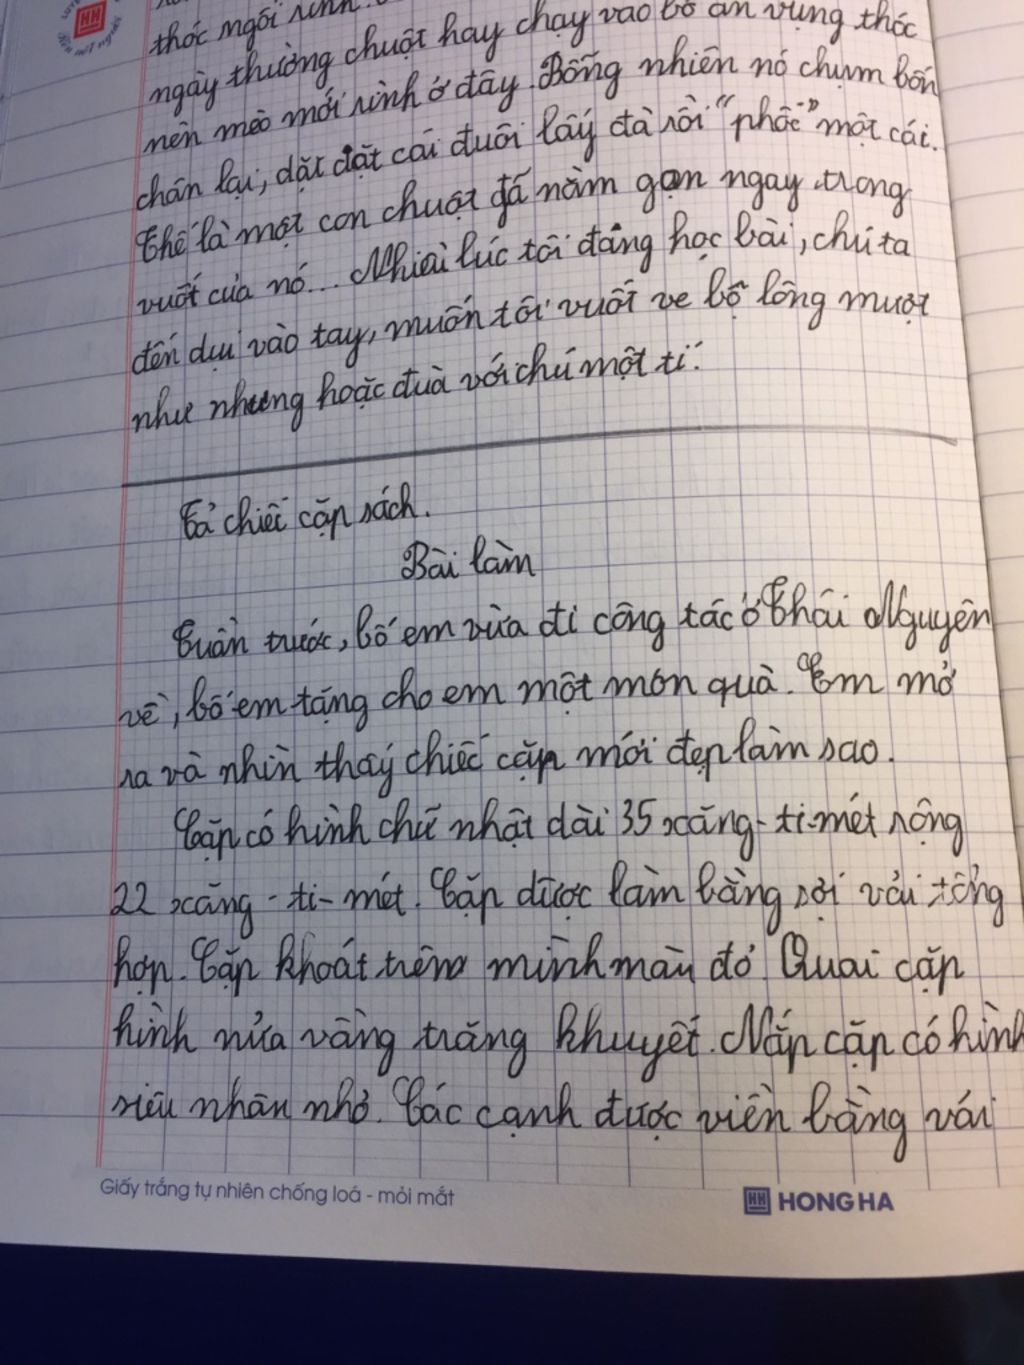 thóc ngồi rình.
ngày thường chuột hay chạy vào bồ ăn vụng thóc
nên mèo mới rình ở đây. Bỗng nhiên nó chụm bốn
chân lại, dặt dặt cái đuôi lấy đà rồi "phốc" một cái.
Thế là một con chuột đã nằm gọn ngay trong
vuốt của nó... Nhiều lúc tôi đang học bài, chú ta
đến dụi vào tay, muốn tôi vuốt ve bộ lông mượt
như nhung hoặc đùa với chú một tí.
Tả chiếc cặp sách.
Bài làm
Tuần trước, bố em vừa đi công tác ở Thái Nguyên
về, bố em tặng cho em một món quà. Em mở
ra và nhìn thấy chiếc cặp mới đẹp làm sao.
Cặp có hình chữ nhật dài 35 xăng-ti-mét rộng
22 xăng-ti-mét. Cặp được làm bằng sợi vải tổng
hợp. Cặp khoát trên mình màu đỏ. Quai cặp
hình nửa vầng trăng khuyết. Nắp cặp có hình
siêu nhân nhỏ. Các cạnh được viền bằng vải
Giấy trắng tự nhiên chống loá - mỏi mắt
HONG HA